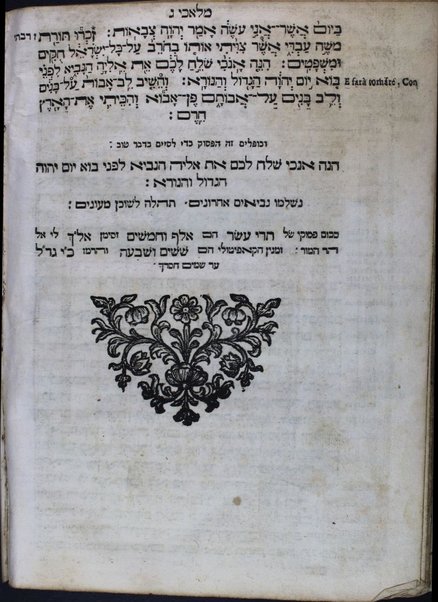 מלאכי ג
ביום אשר־אני עשה אמר יהוה צבאות: זכרו תורת
ז רבתי
משה עבדי אשר צויתי אותו בחרב על־כל־ישראל חקים
ומשפטים: הנה אנכי שלח לכם את אליה הנביא לפני
בוא יום יהוה הגדול והנורא: והשיב לב־אבות על־בנים
E farà tornáre, Con
ולב בנים על־אבותם פן־אבוא והכיתי את־הארץ
חרם:
וכופלים זה הפסוק כדי לסיים בדבר טוב:
הנה אנכי שלח לכם את אליה הנביא לפני בוא יום יהוה
הגדול והנורא:
נשלמו נביאים אחרונים. תהלה לשוכן מעונים:
סכום פסוקי של תרי עשר הם אלף וחמשים וסימן אל״ך לי אל
הר המור: ומנין הקאפיטולי הם ששים ושבעה והרמז כ״י גד״ל
עד שמים חסדך: